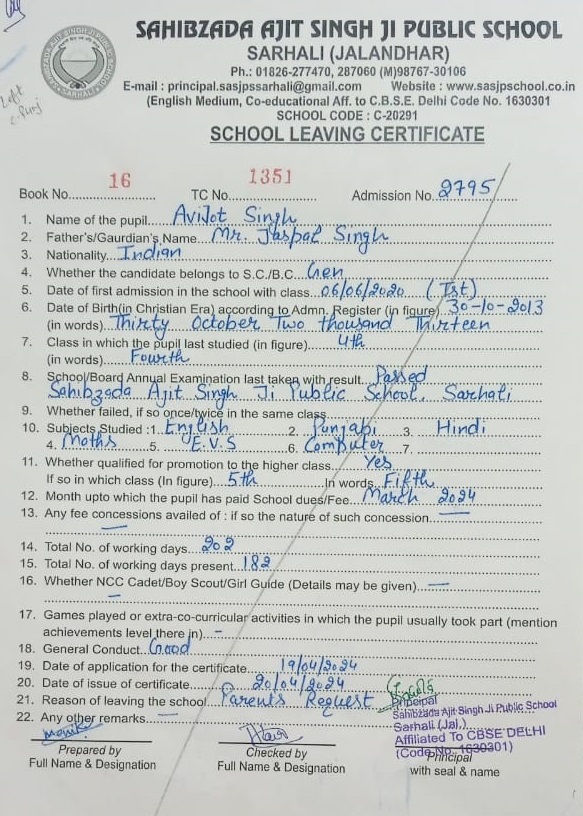 SAHIBZADA AJIT SINGH JI PUBLIC SCHOOL
SARHALI (JALANDHAR)
Ph.: 01826-277470, 287060 (M)98767-30106
E-mail : principal.sasjpssarhali@gmail.com Website : www.sasjpschool.co.in
(English Medium, Co-educational Aff. to C.B.S.E. Delhi Code No. 1630301
SCHOOL CODE : C-20291
SCHOOL LEAVING CERTIFICATE
Left
Book No. 16 TC No. 1351 Admission No. 2795
1. Name of the pupil Avijot Singh
2. Father's/Gaurdian's Name Mr. Jaspal Singh
3. Nationality Indian
4. Whether the candidate belongs to S.C./B.C. Gen
5. Date of first admission in the school with class 06/06/2020 (Ist)
6. Date of Birth(in Christian Era) according to Admn. Register (in figure) 30-10-2013
(in words) Thirty October Two thousand Thirteen
7. Class in which the pupil last studied (in figure) 4th
(in words) Fourth
8. School/Board Annual Examination last taken with result. Passed
Sahibzada Ajit Singh Ji Public School, Sarhali
9. Whether failed, if so once/twice in the same class
10. Subjects Studied :1. English 2. Punjabi 3. Hindi
4. Maths 5. E.V.S 6. Computer 7.
11. Whether qualified for promotion to the higher class. Yes
If so in which class (In figure) 5th In words. Fifth
12. Month upto which the pupil has paid School dues/Fee March 2024
13. Any fee concessions availed of : if so the nature of such concession. —
—
14. Total No. of working days 202
15. Total No. of working days present 182
16. Whether NCC Cadet/Boy Scout/Girl Guide (Details may be given) —
—
17. Games played or extra-co-curricular activities in which the pupil usually took part (mention
achievements level there in) -
18. General Conduct Good
19. Date of application for the certificate 19/04/2024
20. Date of issue of certificate 20/04/2024
21. Reason of leaving the school Parents Request
22. Any other remarks —
Principal
Sahibzada Ajit Singh Ji Public School
Sarhali (Jal,)
Affiliated To CBSE DELHI
(Code No. 1630301)
Prepared by Checked by Principal
Full Name & Designation Full Name & Designation with seal & name